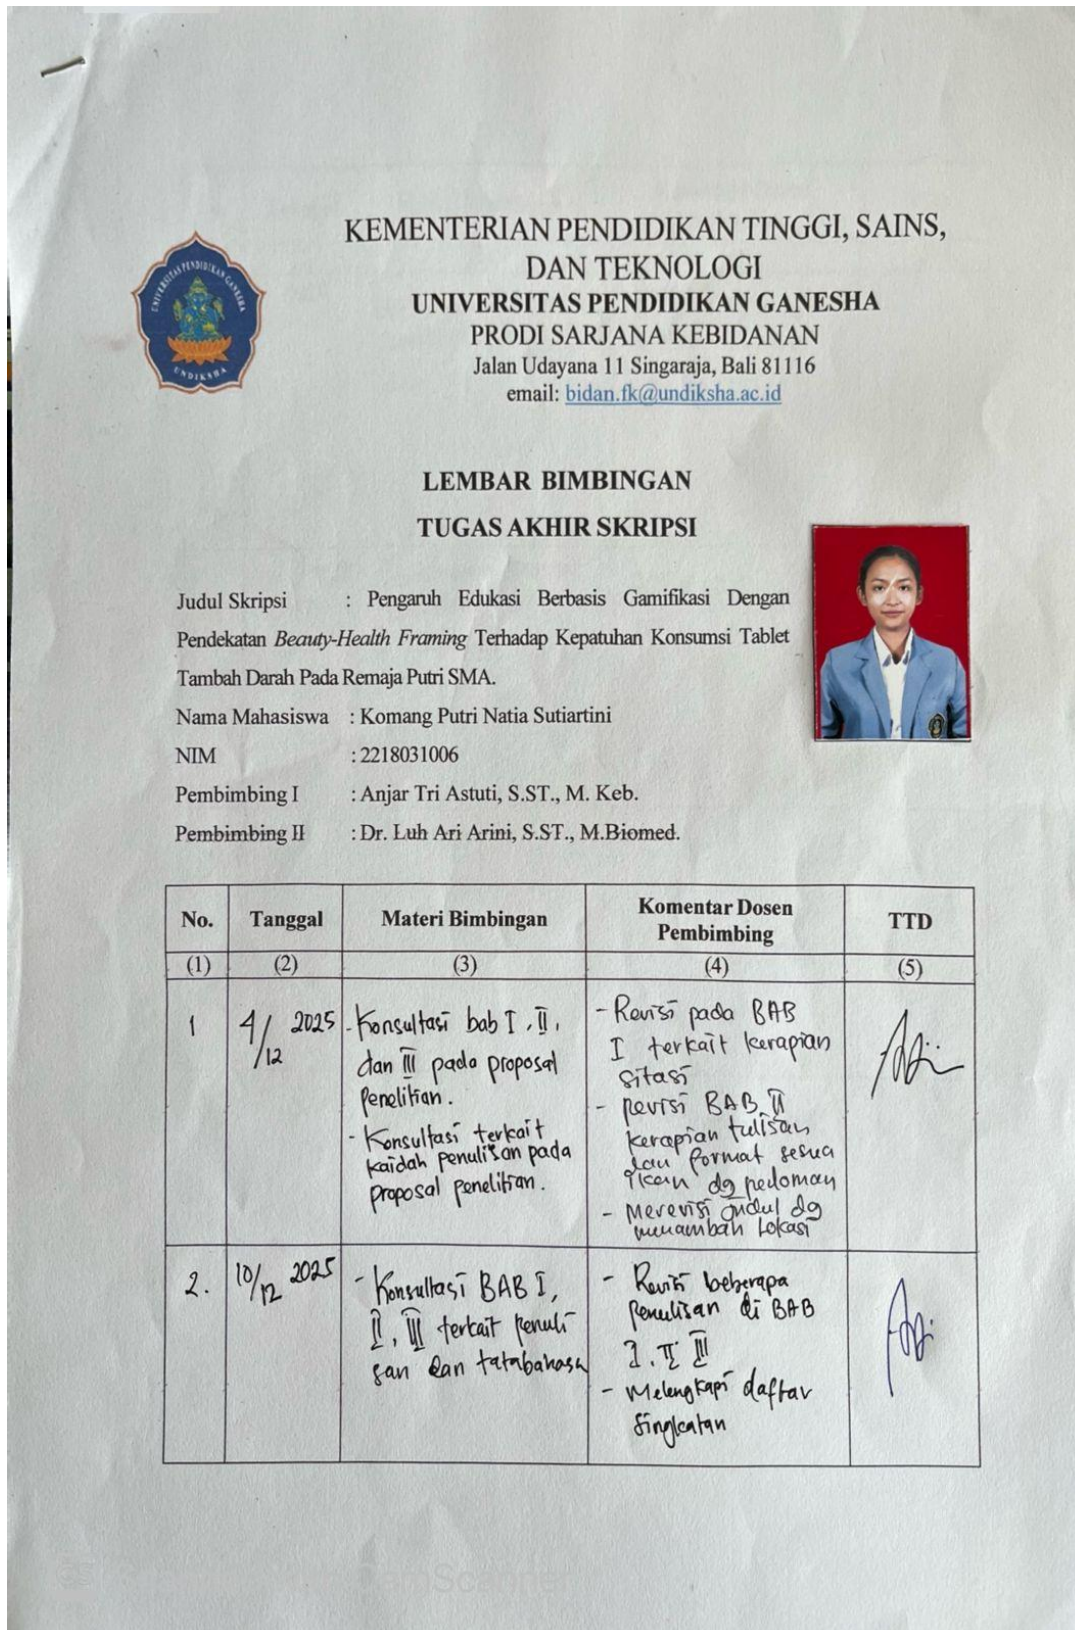 KEMENTERIAN PENDIDIKAN TINGGI, SAINS,
DAN TEKNOLOGI
UNIVERSITAS PENDIDIKAN GANESHA
PRODI SARJANA KEBIDANAN
Jalan Udayana 11 Singaraja, Bali 81116
email: bidan.fk@undiksha.ac.id
UNIVERSITAS PENDIDIKAN GANESHA
UNDIKSHA
LEMBAR BIMBINGAN
TUGAS AKHIR SKRIPSI
Judul Skripsi : Pengaruh Edukasi Berbasis Gamifikasi Dengan
Pendekatan Beauty-Health Framing Terhadap Kepatuhan Konsumsi Tablet
Tambah Darah Pada Remaja Putri SMA.
Nama Mahasiswa : Komang Putri Natia Sutiartini
NIM : 2218031006
Pembimbing I : Anjar Tri Astuti, S.ST., M. Keb.
Pembimbing II : Dr. Luh Ari Arini, S.ST., M.Biomed.
No. Tanggal Materi Bimbingan Komentar Dosen Pembimbing TTD
(1) (2) (3) (4) (5)
1
4/12 2025
- Konsultasi bab I, II,
dan III pada proposal
penelitian.
- Konsultasi terkait
kaidah penulisan pada
proposal penelitian.
- Revisi pada BAB
I terkait kerapian
sitasi
- revisi BAB II
kerapian tulisan
dan format sesua
ikan dg pedoman
- Merevisi judul dg
menambah lokasi
2.
10/12 2025
- Konsultasi BAB I,
II, III terkait penuli
san dan tatabahasa
- Revisi beberapa
penulisan di BAB
I, II III
- Melengkapi daftar
singkatan
CS CamScanner